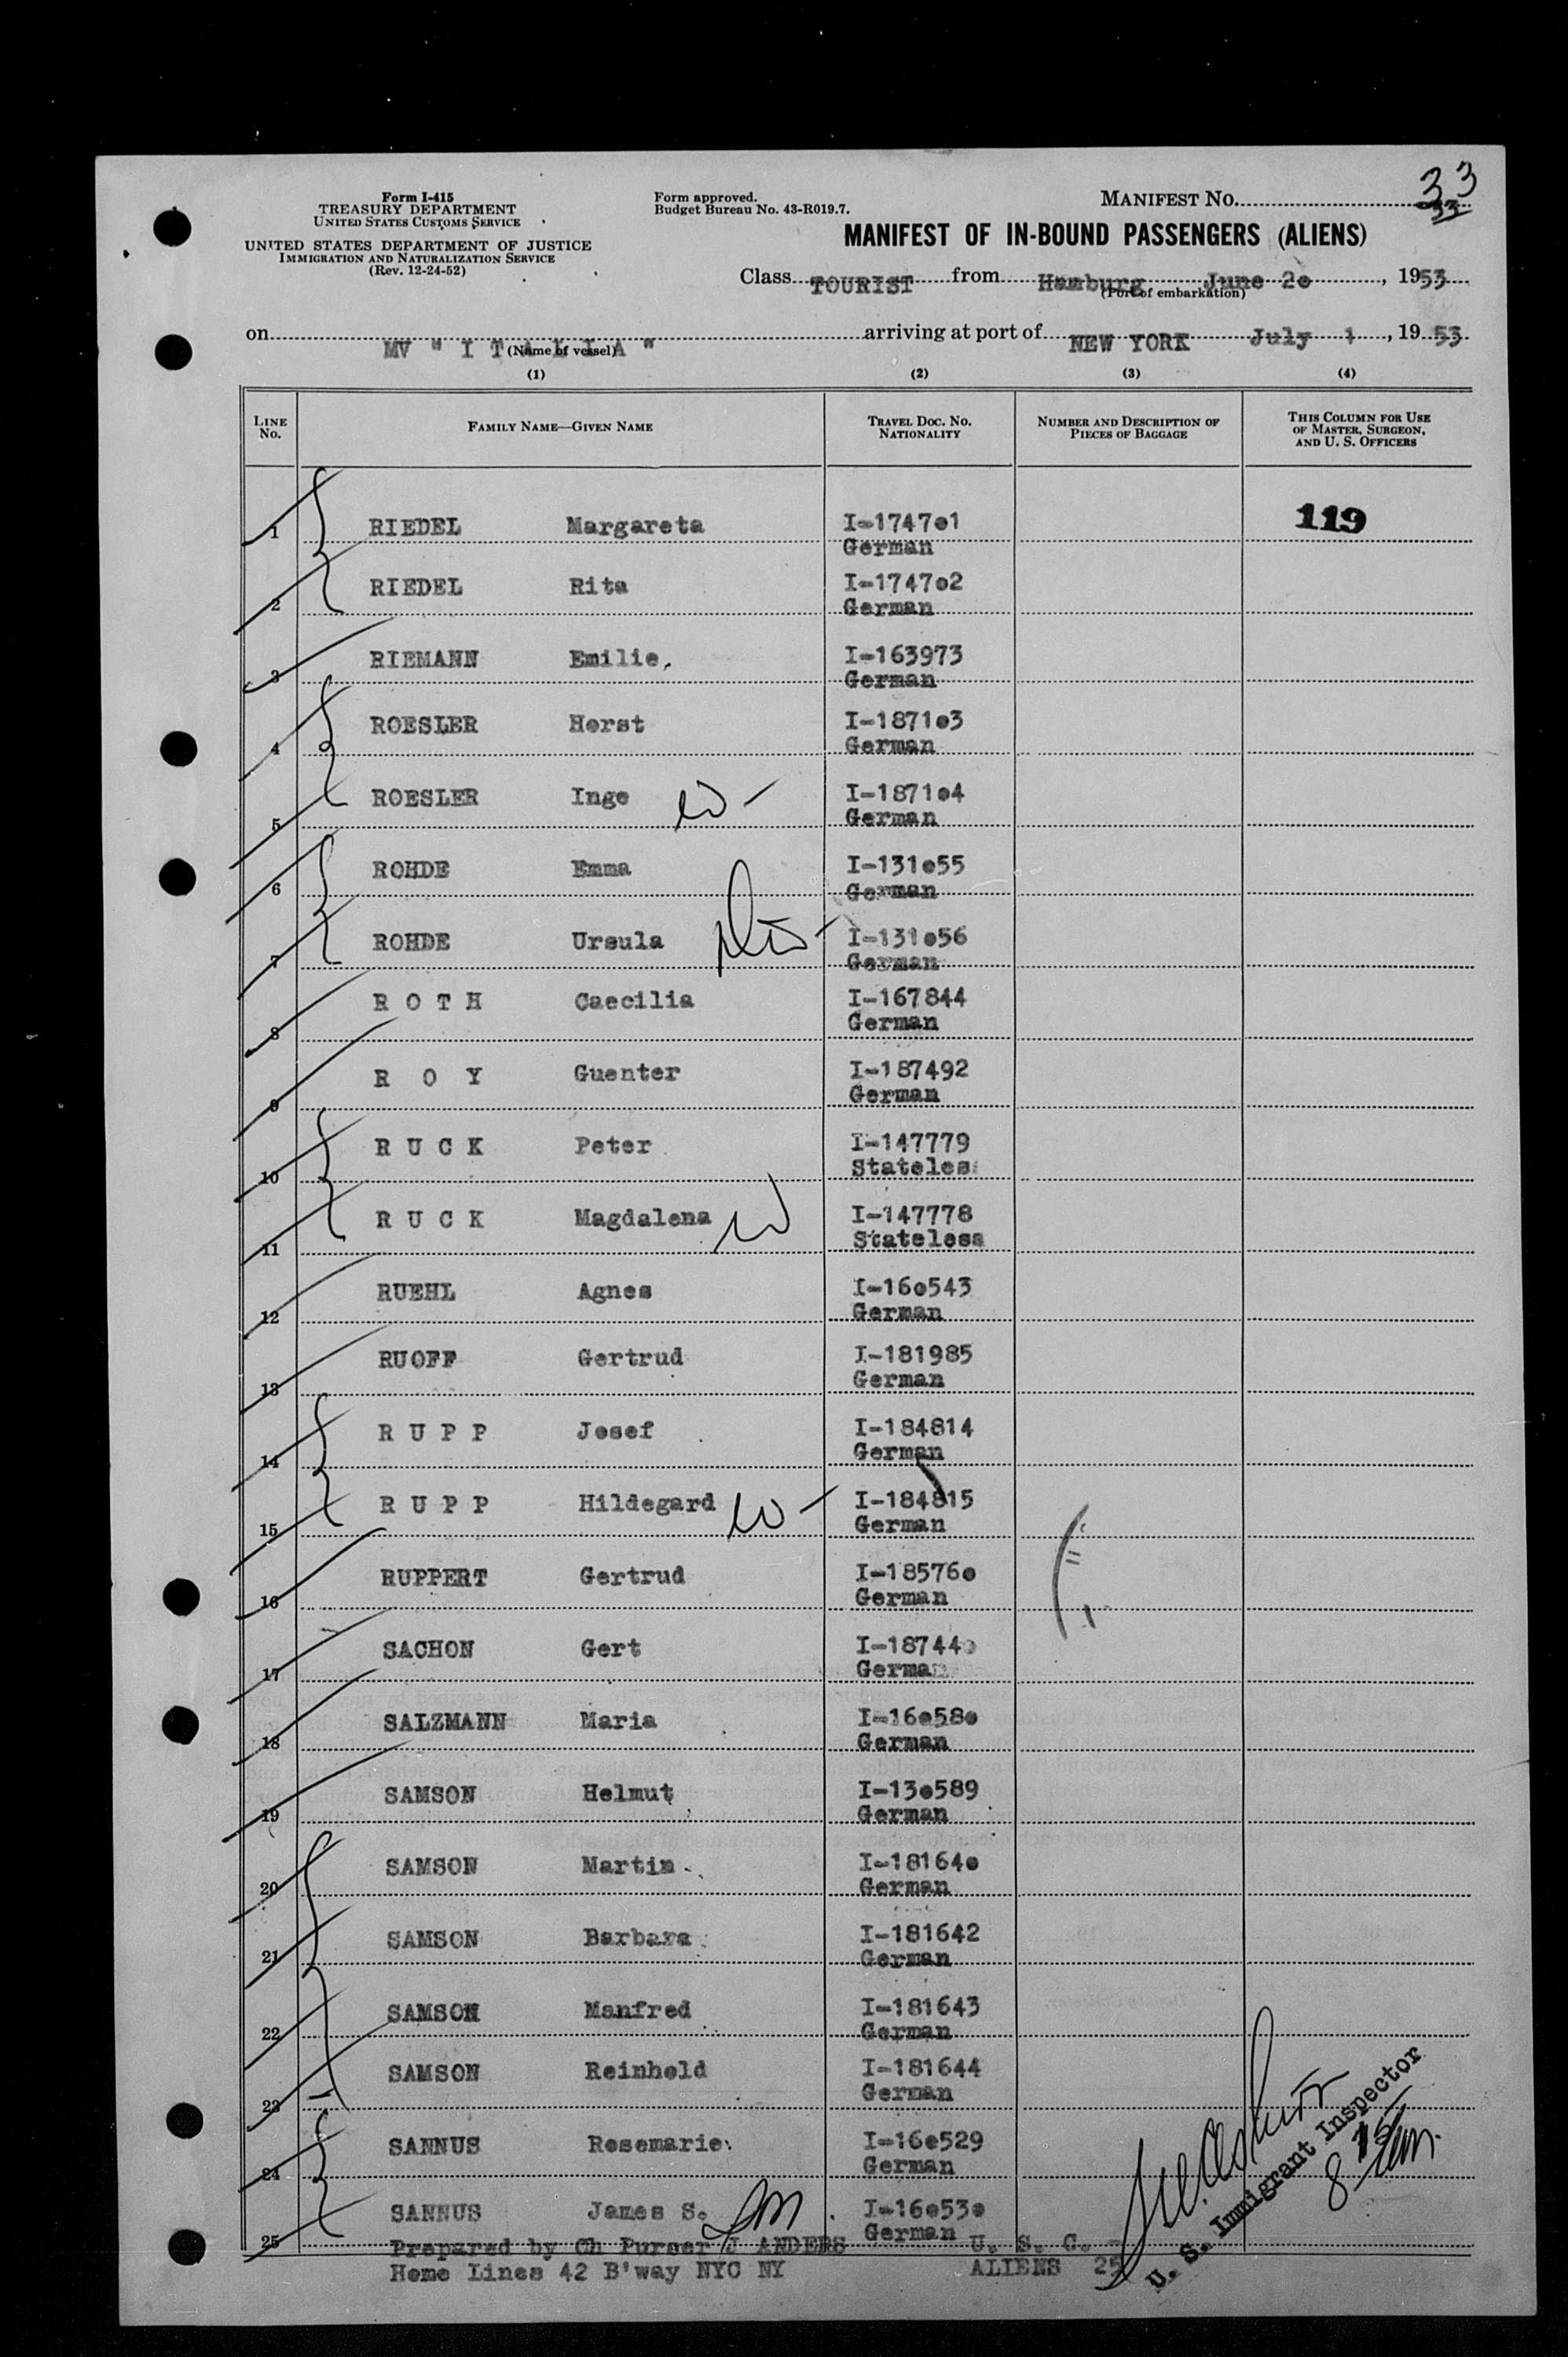 Form I-415
TREASURY DEPARTMENT
UNITED STATES CUSTOMS SERVICE
UNITED STATES DEPARTMENT OF JUSTICE
IMMIGRATION AND NATURALIZATION SERVICE
(Rev. 12-24-52)
Form approved.
Budget Bureau No. 43-R019.7.
MANIFEST No. 33
33
MANIFEST OF IN-BOUND PASSENGERS (ALIENS)
Class TOURIST from Hamburg June 2o, 1953
(Port of embarkation)
on MV " I T A L I A " arriving at port of NEW YORK July 1, 1953
(Name of vessel)
(1) (2) (3) (4)
LINE No. FAMILY NAME—GIVEN NAME TRAVEL DOC. NO. NATIONALITY NUMBER AND DESCRIPTION OF PIECES OF BAGGAGE THIS COLUMN FOR USE OF MASTER, SURGEON, AND U. S. OFFICERS
1 RIEDEL Margareta I-1747o1 119
German
2 RIEDEL Rita I-1747o2
German
3 RIEMANN Emilie I-163973
German
4 ROESLER Horst I-1871o3
German
5 ROESLER Inge I-1871o4
German
6 ROHDE Emma I-131o55
German
7 ROHDE Ursula I-131o56
German
8 R O T H Caecilia I-167844
German
9 R O Y Guenter I-187492
German
10 R U C K Peter I-147779
Stateles
11 R U C K Magdalena I-147778
Stateless
12 RUEHL Agnes I-16o543
German
13 RUOFF Gertrud I-181985
German
14 R U P P Josef I-184814
German
15 R U P P Hildegard I-184815
German
16 RUPPERT Gertrud I-18576o
German
17 SACHON Gert I-18744o
German
18 SALZMANN Maria I-16o58o
German
19 SAMSON Helmut I-13o589
German
20 SAMSON Martin I-18164o
German
21 SAMSON Barbara I-181642
German
22 SAMSON Manfred I-181643
German
23 SAMSON Reinhold I-181644
German
24 SANNUS Rosemarie I-16o529
German
25 SANNUS James S. I-16o53o
German
Prepared by Ch Purser J ANDERS U. S. C. -
Home Lines 42 B'way NYC NY ALIENS 25
U. S. Immigrant Inspector